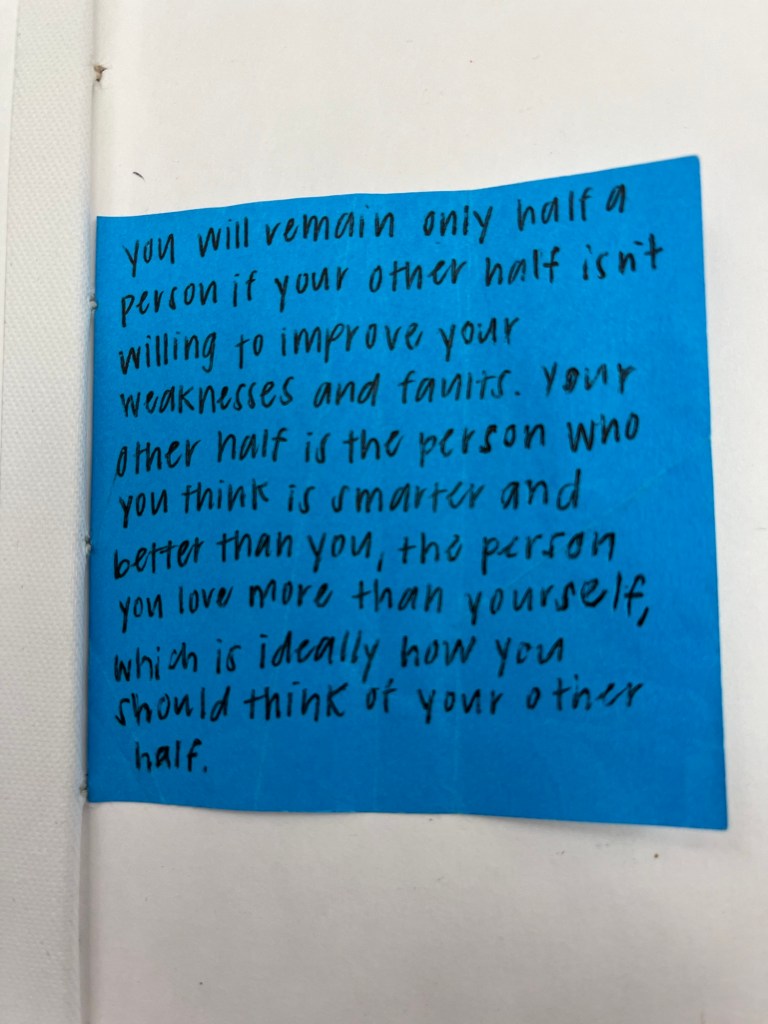 you will remain only half a
person if your other half isn't
willing to improve your
weaknesses and faults. Your
other half is the person who
you think is smarter and
better than you, the person
you love more than yourself,
which is ideally how you
should think of your other
half.